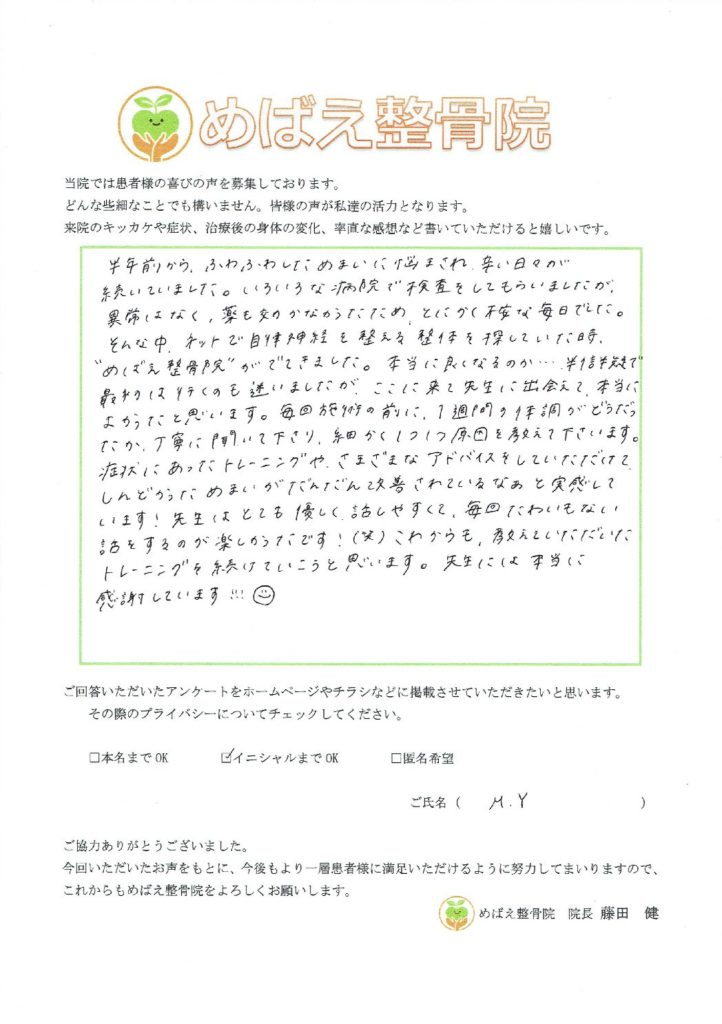 めばえ整骨院
当院では患者様の喜びの声を募集しております。
どんな些細なことでも構いません。皆様の声が私達の活力となります。
来院のキッカケや症状、治療後の身体の変化、率直な感想など書いていただけると嬉しいです。
半年前から、ふわふわしためまいに悩まされ、辛い日々が
続いていました。いろいろな病院で検査をしてもらいましたが、
異常はなく、薬も効かなかったため、とにかく不安な毎日でした。
そんな中、ネットで自律神経を整える整体を探していた時、
"めばえ整骨院"がでてきました。本当に良くなるのか…半信半疑で
最初は行くのも迷いましたが、ここに来て先生に出会えて、本当に
よかったと思います。毎回施術の前に、1週間の体調がどうだっ
たか、丁寧に聞いて下さり、細かく1つ1つ原因を教えて下さいます。
症状にあったトレーニングや、さまざまなアドバイスをしていただけて、
しんどかっためまいがだんだん改善されているなぁと実感して
います!先生はとても優しく、話しやすくて、毎回たわいもない
話をするのが楽しかったです!(笑)これからも、教えていただいた
トレーニングを続けていこうと思います。先生には本当に
感謝しています!!!
ご回答いただいたアンケートをホームページやチラシなどに掲載させていただきたいと思います。
その際のプライバシーについてチェックしてください。
□本名までOK ☑イニシャルまでOK □匿名希望
ご氏名( M.Y )
ご協力ありがとうございました。
今回いただいたお声をもとに、今後もより一層患者様に満足いただけるように努力してまいりますので、
これからもめばえ整骨院をよろしくお願いします。
めばえ整骨院 院長 藤田 健